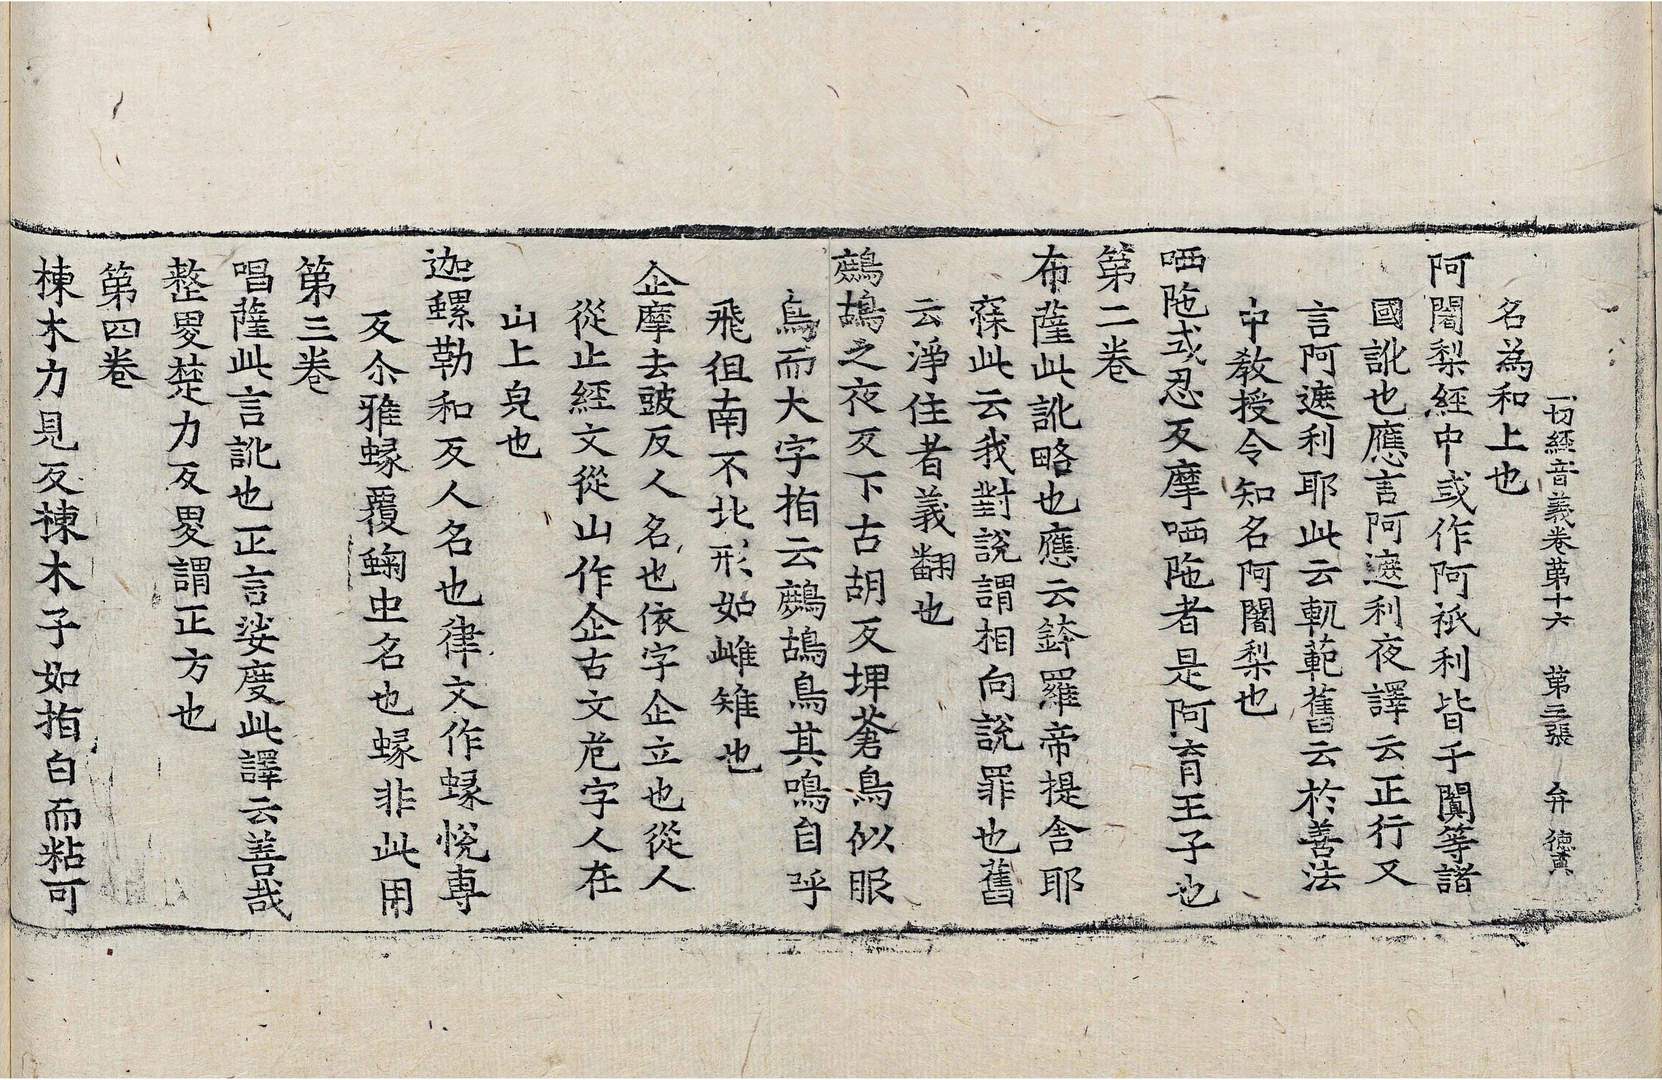 一切經音義卷第十六 第三張 弁 德䕫
名為和上也
阿闍梨經中或作阿祇利皆千闐等諸
國訛也應言阿遮利夜譯云正行又
言阿遮利耶此云軌範舊云於善法
中教授令知名阿闍梨也
哂陁式忍反摩哂陁者是阿育王子也
第二卷
布薩此訛略也應云鉢羅帝提舍耶
寐此云我對說謂相向說罪也舊
云淨住者義翻也
鷓鴣之夜反下古胡反埤蒼鳥似服
鳥而大字指云鷓鴣鳥其鳴自呼
飛徂南不北形如雌雉也
企摩去豉反人名也依字企立也從人
從止經文從山作企古文危字人在
山上皃也
迦蠡勒和反人名也律文作蝝悅專
反尒雅蝝覆蜪虫名也蝝非此用
第三卷
唱薩此言訛也正言娑度此譯云善哉
整畟楚力反畟謂正方也
第四卷
楝木力見反楝木子如指白而粘可